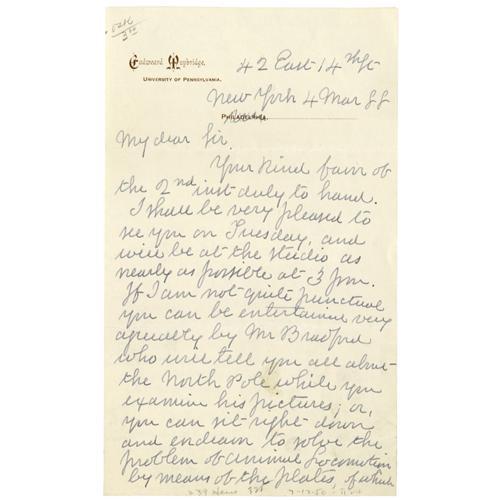 Eadweard Muybridge.
UNIVERSITY OF PENNSYLVANIA.
42 East 14th St
New York 4 Mar 88
PHILADELPHIA,
My dear Sir.
Your kind favr of
the 2nd inst duly to hand.
I shall be very pleased to
see you on Tuesday, and
will be at the studio as
nearly as possible at 3 pm.
If I am not quite punctual
you can be entertained very
agreeably by Mr Bradford
who will tell you all about
the North Pole while you
examine his pictures; or,
you can sit right down
and endeavor to solve the
problem of animal Locomotion
by means of the plates, of which